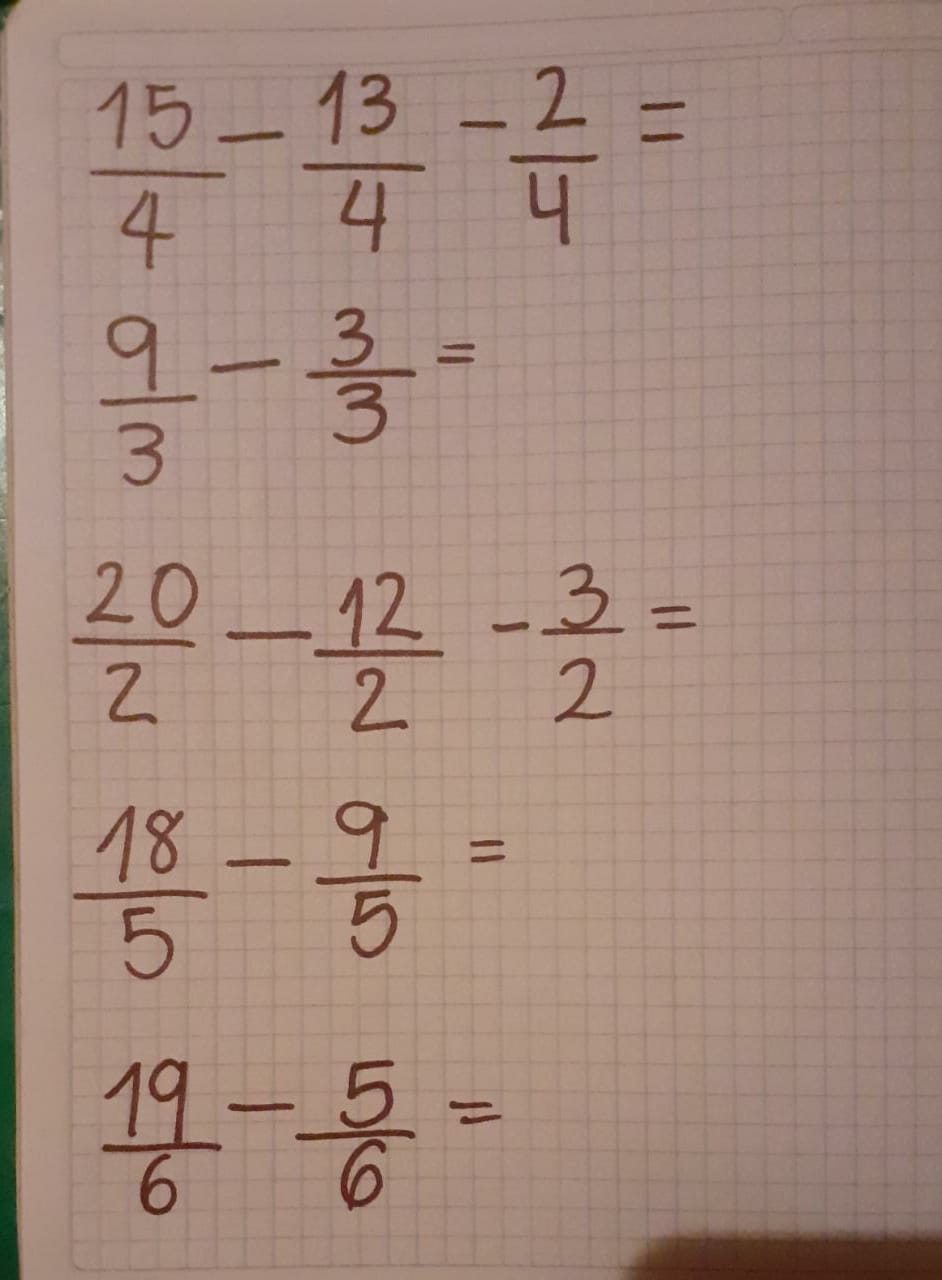 15/4 − 13/4 − 2/4 =
9/3 − 3/3 =
20/2 − 12/2 - 3/2 =
18/5 − 9/5 =
19/6 − 5/6 =